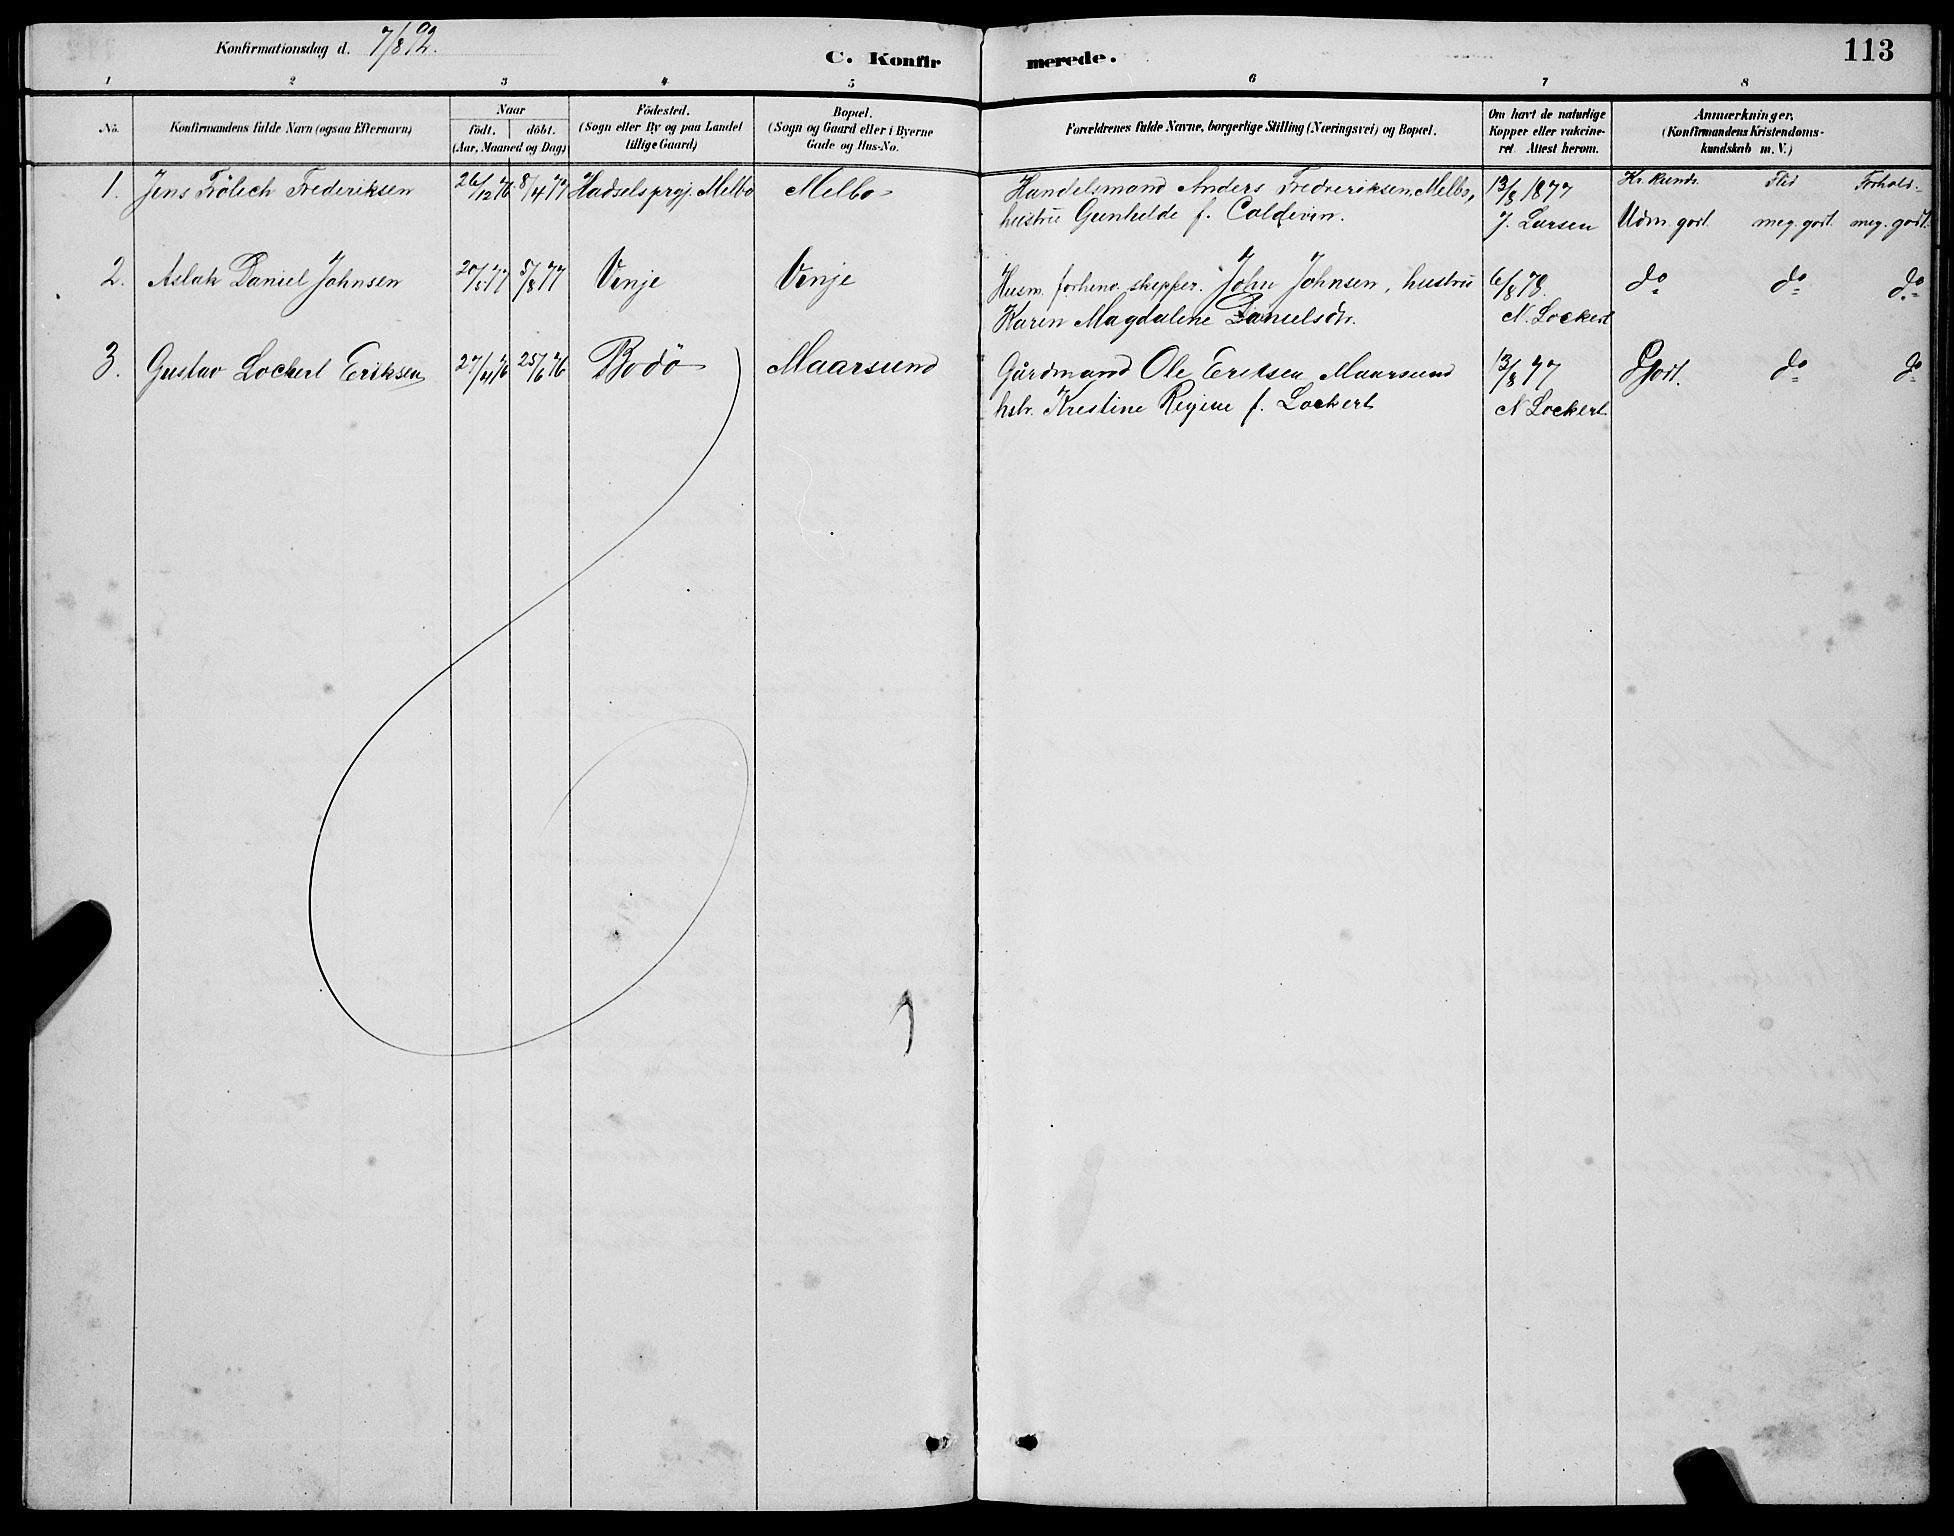 Konfirmationsdag d. 7/8 92.
C. Konfirmerede.
113
1 2 3 4 5 6 7 8
No.
Konfirmandens fulde Navn (ogsaa Efternavn)
Naar
födt. döbt.
(Aar, Maaned og Dag)
Födested.
(Sogn eller By og paa Landet
tillige Gaard)
Bopæl.
(Sogn og Gaard eller i Byerne
Gade og Hus-No.
Forældrenes fulde Navne, borgerlige Stilling (Næringsvei) og Bopæl.
Om havt de naturlige
Kopper eller vakcine-
ret. Attest herom.
Anmærkninger.
(Konfirmandens Kristendoms-
kundskab m. V.)
1. Jens Frölich Frederiksen 26/12 76 8/4 77 Hadsels prgj. Melbo Melbo
Handelsmand Anders Fredreriksen, Melbo,
hustru Gunhilde f. Coldevin.
13/8 1877
J. Larsen
Kr. kunds. Flid Forhold.
Udm. godt. meg. godt. meg. godt.
2. Aslak Daniel Johnsen 20/5 77 5/8 77 Vinje Vinje
Husm. forhenv. skipper. John Johnsen, hustru
Karen Magdalene Danielsdtr.
6/8 78.
N. Lockert
do do do
3. Gustav Lockert Eriksen 27/4 76 25/6 76 Bodö Maarsund
Gårdmand Ole Eriksen Maarsund
hstr. Kristine Regine f. Lockert
13/8 77
N Lockert
Godt. do do